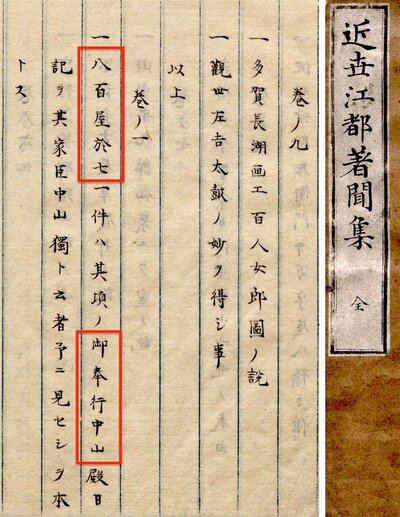 近世江都著聞集
全
巻ノ九
一多賀長湖画工百人女郎圖ノ説
一觀世左吉太鼓ノ妙ヲ得シ事
以上
巻ノ一
一八百屋於七一件ハ其頃ノ御奉行中山殿日
記ヲ其家臣中山獨ト云者予ニ見セシヲ本
トス